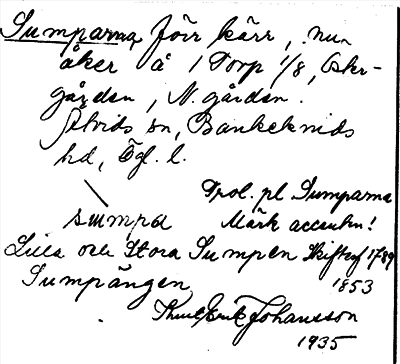 Sumparna, förr kärr, nu
åker å 1 Torp 1/8, Öster-
gården, N. gården.
Åtvids sn, Bankekinds
hd, Ögl. l.
Trol. pl Sumparna
sumpa Märk accenten!
Lilla och Stora Sumpen Skifteh 1789
Sumpängen 1853
Knut Erik Johansson
1935